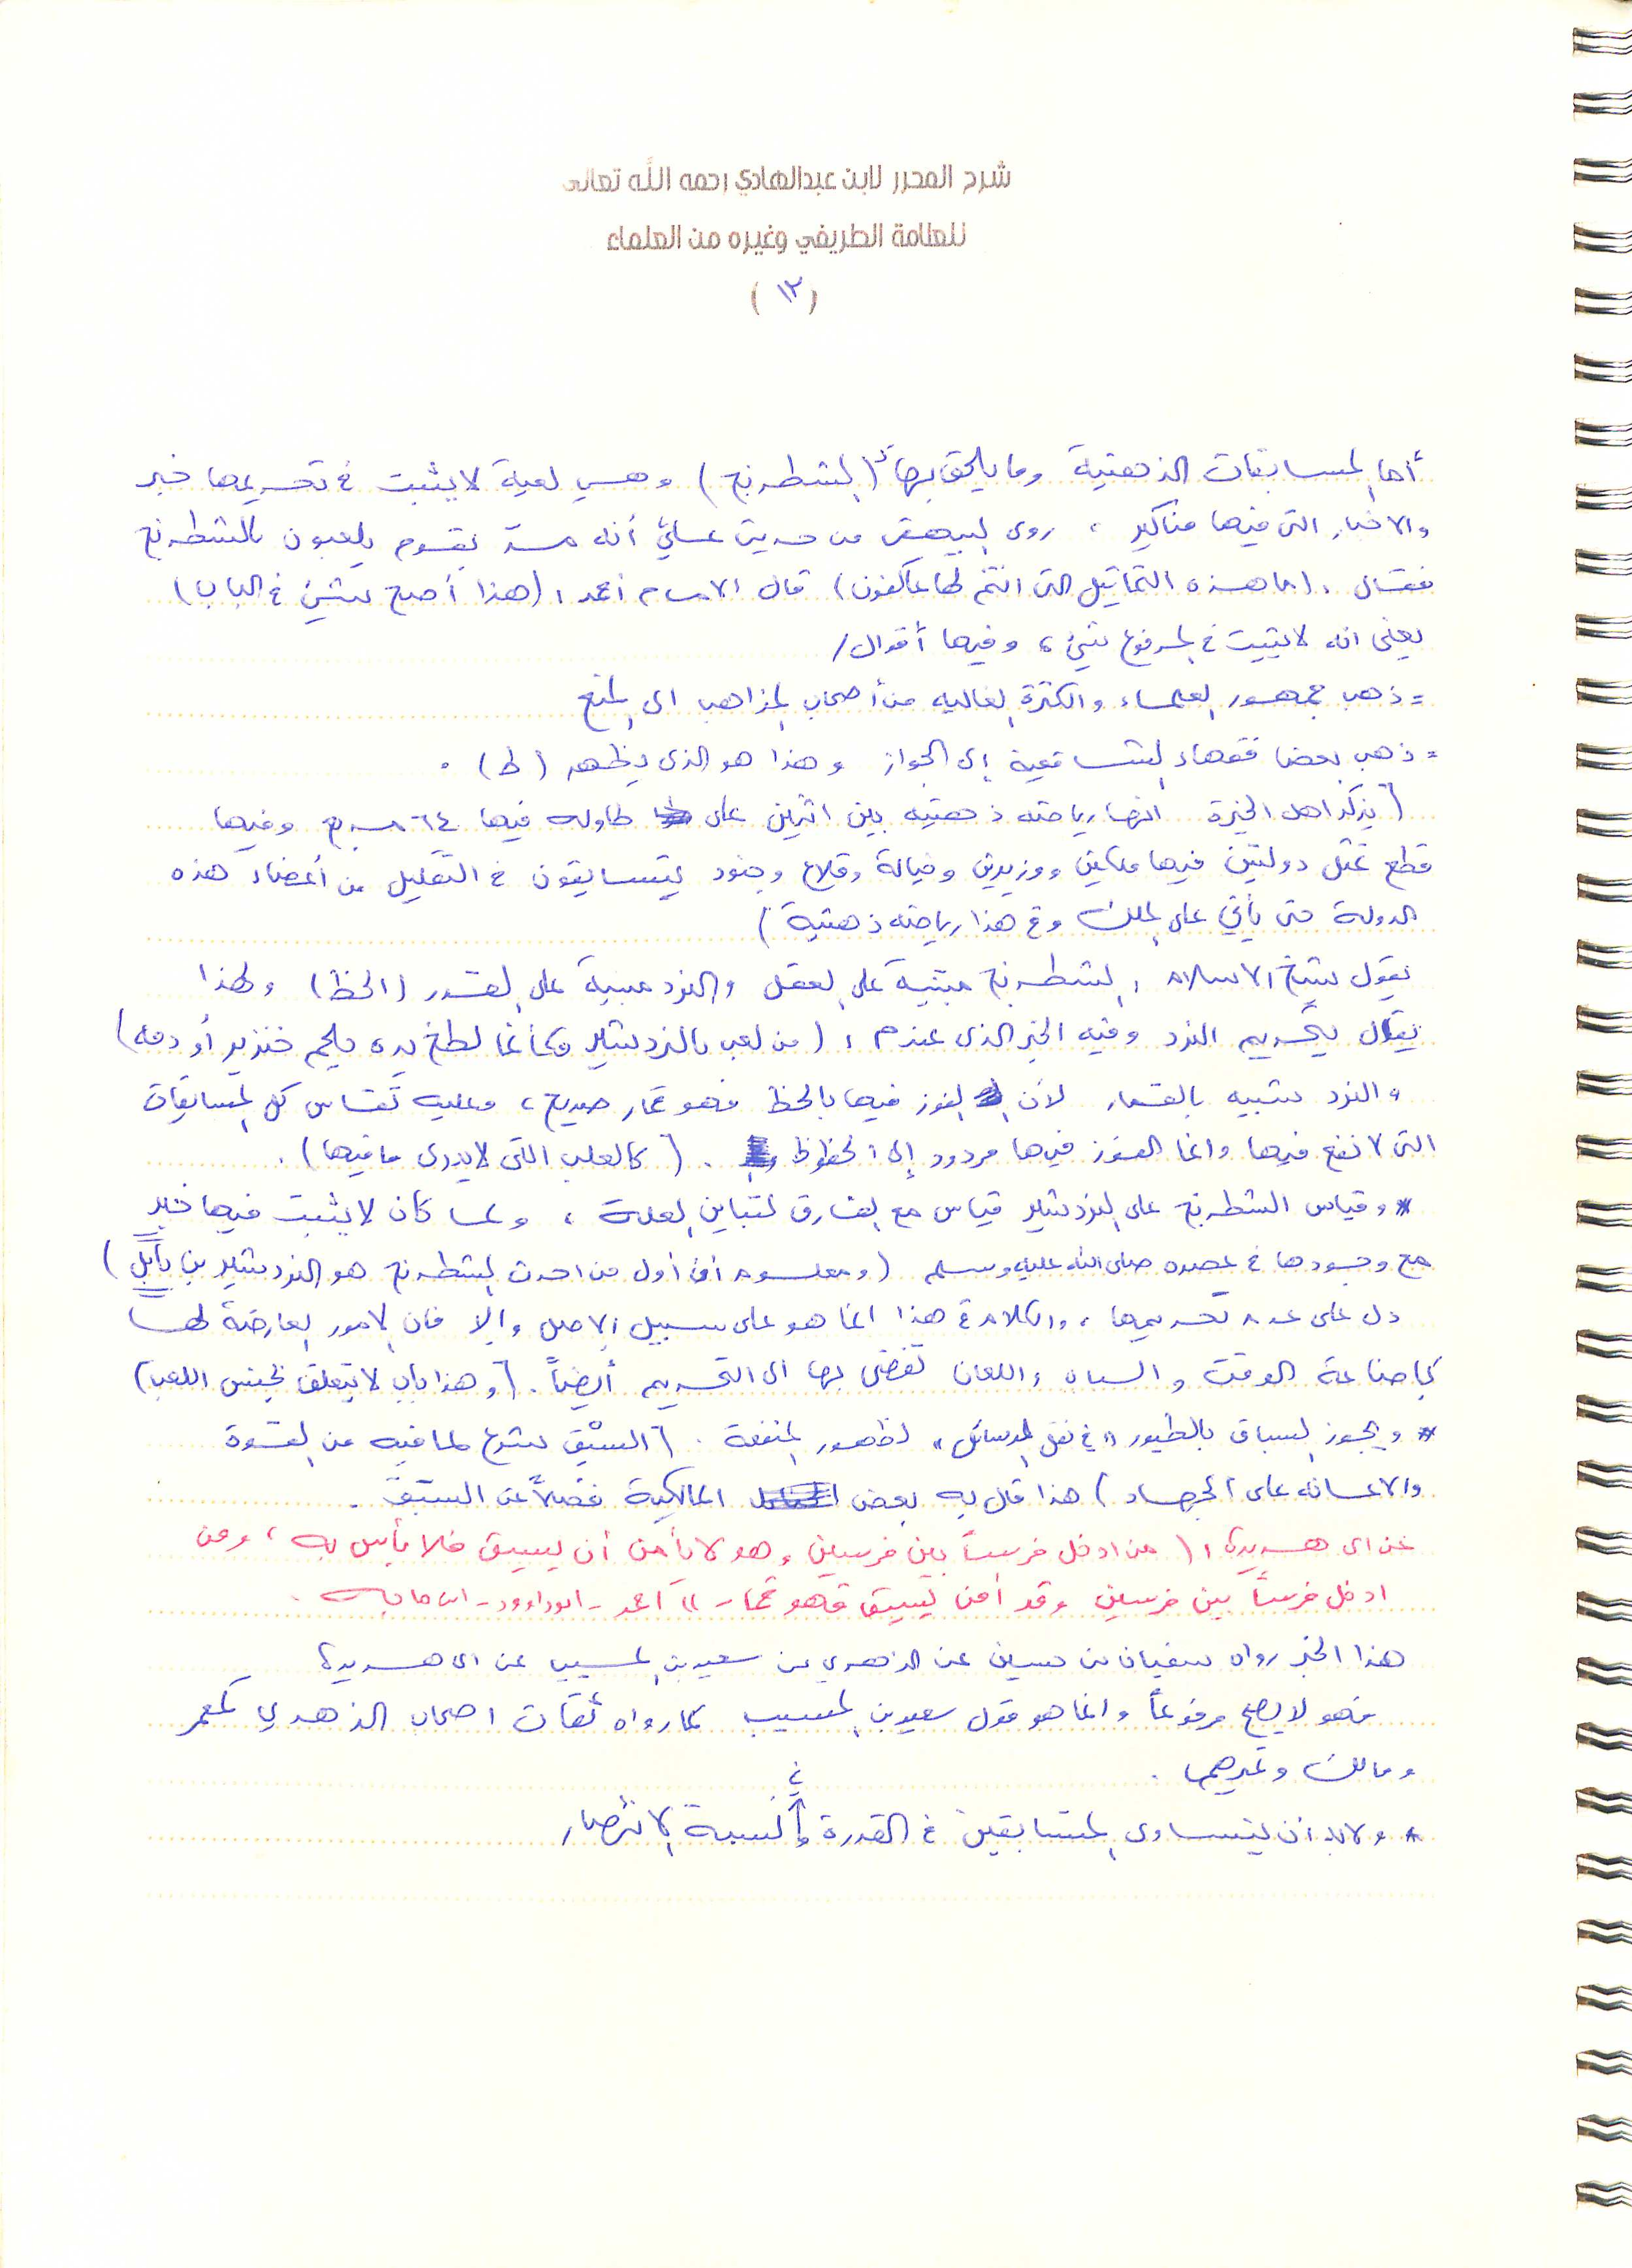 شرح المحرر لابن عبدالهادي رحمه الله تعالى
للعلامة الطريفي وغيره من العلماء
(١٣)
أما المسابقات الذهنية وما يلحق بها (الشطرنج) وهي لعبة لا يثبت في تحريمها خبر
والاخبار التي فيها مناكير ، روى البيهقي من حديث علي أنه مر بقوم يلعبون بالشطرنج
فقال : (ما هذه التماثيل التي انتم لها عاكفون) قال الامام أحمد : (هذا أصح شيء في الباب)
يعني انه لا يثبت في المرفوع شيء ، وفيها أقوال /
= ذهب جمهور العلماء والكثرة الغالبه من أصحاب المذاهب الى المنع
= ذهب بعض فقهاء الشافعية إلى الجواز وهذا هو الذي يظهر (ط) .
(يذكر اهل الخبرة انها رياضه ذهنيه بين اثنين على طاوله فيها ٦٤ مربع وفيها
قطع تمثل دولتين فيها ملكين ووزيرين وخيالة وقلاع وجنود يتسابقون في التقليل من أعضاء هذه
الدولة حتى يأتي على الملك وفي هذا رياضه ذهنية)
يقول شيخ الاسلام : الشطرنج مبنية على العقل والنرد مبنية على القدر (الحظ) ولهذا
يقال بتحريم النرد وفيه الخبر الذي عند م : (من لعب بالنردشير فكأنما لطخ يده بلحم خنزير أو دمه)
والنرد شبيه بالقمار لأن الفوز فيها بالحظ فهو قمار صريح ، وعليه تقاس كل المسابقات
التي لا نفع فيها وانما الفوز فيها مردود إلى الحظوظ . (كالعلب اللتي لا يدرى ما فيها) .
* وقياس الشطرنج على النردشير قياس مع الفارق لتباين العلة ، ولما كان لا يثبت فيها خبر
مع وجودها في عصره صلى الله عليه وسلم (ومعلوم أن أول من احدث الشطرنج هو النردشير بن بابل)
دل على عدم تحريمها ، والكلام في هذا انما هو على سبيل الاصل وإلا فان الامور العارضة لها
كإضاعة الوقت والسباب واللعان تفضى بها الى التحريم أيضاً . (وهذا باب لا يتعلق بجنس اللعب)
* ويجوز السباق بالطيور "في نقل الرسائل" لظهور المنفعة . (السَبْق شرع لما فيه من القوة
والاعانه على الجهاد) هذا قال به بعض المالكية فضلاً عن السَبَق .
عن ابي هريرة : (من ادخل فرساً بين فرسين وهو لا يأمن أن يسبق فلا بأس به ، ومن
ادخل فرساً بين فرسين وقد أمن يسبق فهو قمار) احمد - ابو داوود - ابن ماجه .
هذا الخبر رواه سفيان بن حسين عن الزهري عن سعيد بن المسيب عن ابي هريرة
فهو لا يصح مرفوعاً وانما هو قول سعيد بن المسيب كما رواه ثقات اصحاب الزهري كمعمر
ومالك وغيرهما .
* ولابد ان يتساوى المتسابقين في القدرة والنسبة في الانتصار